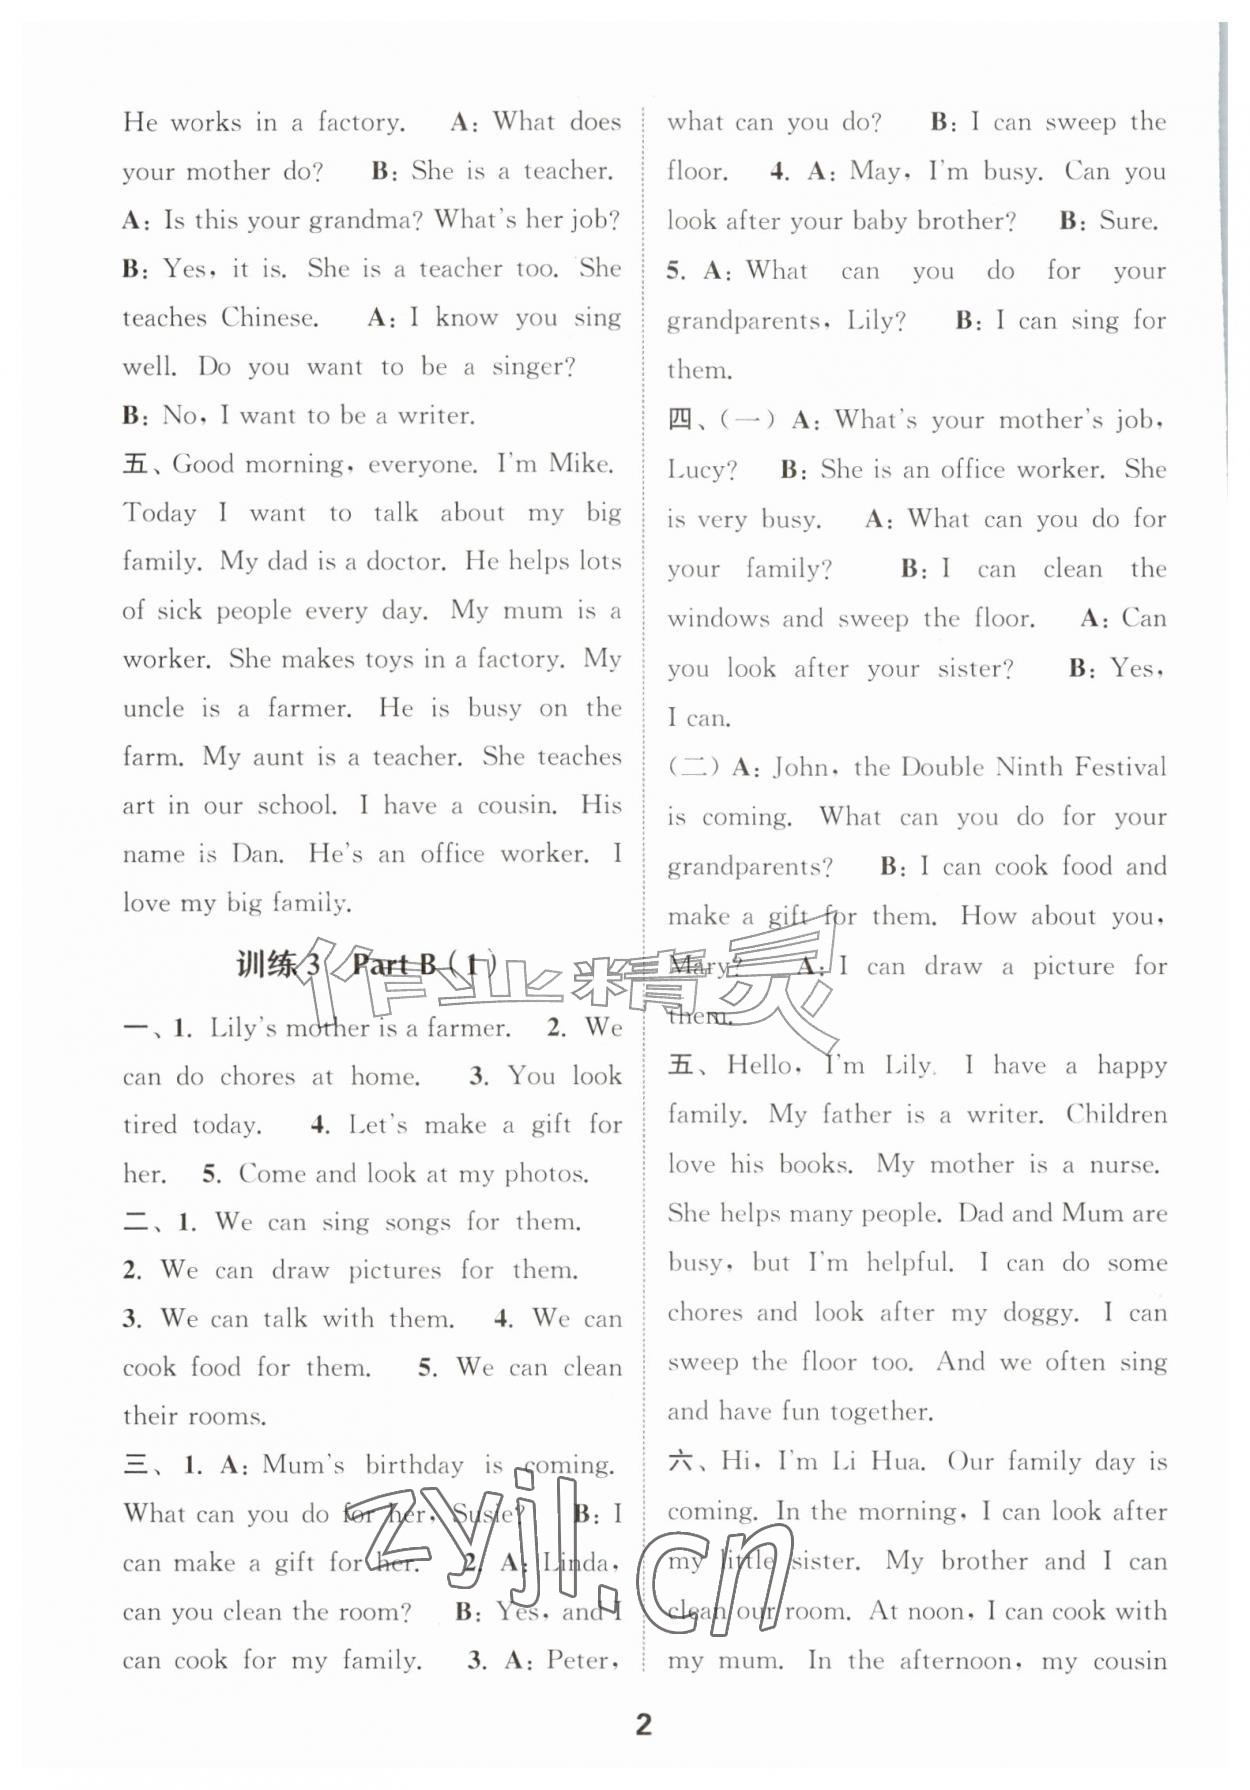 He works in a factory. A: What does
your mother do? B: She is a teacher.
A: Is this your grandma? What's her job?
B: Yes, it is. She is a teacher too. She
teaches Chinese. A: I know you sing
well. Do you want to be a singer?
B: No, I want to be a writer.
五、Good morning, everyone. I'm Mike.
Today I want to talk about my big
family. My dad is a doctor. He helps lots
of sick people every day. My mum is a
worker. She makes toys in a factory. My
uncle is a farmer. He is busy on the
farm. My aunt is a teacher. She teaches
art in our school. I have a cousin. His
name is Dan. He's an office worker. I
love my big family.
训练 3 Part B(1)
一、1. Lily's mother is a farmer. 2. We
can do chores at home. 3. You look
tired today. 4. Let's make a gift for
her. 5. Come and look at my photos.
二、1. We can sing songs for them.
2. We can draw pictures for them.
3. We can talk with them. 4. We can
cook food for them. 5. We can clean
their rooms.
三、1. A: Mum's birthday is coming.
What can you do for her, Susie? B: I
can make a gift for her. 2. A: Linda,
can you clean the room? B: Yes, and I
can cook for my family. 3. A: Peter,
what can you do? B: I can sweep the
floor. 4. A: May, I'm busy. Can you
look after your baby brother? B: Sure.
5. A: What can you do for your
grandparents, Lily? B: I can sing for
them.
四、(一) A: What's your mother's job,
Lucy? B: She is an office worker. She
is very busy. A: What can you do for
your family? B: I can clean the
windows and sweep the floor. A: Can
you look after your sister? B: Yes,
I can.
(二) A: John, the Double Ninth Festival
is coming. What can you do for your
grandparents? B: I can cook food and
make a gift for them. How about you,
Mary? A: I can draw a picture for
them.
五、Hello, I'm Lily. I have a happy
family. My father is a writer. Children
love his books. My mother is a nurse.
She helps many people. Dad and Mum are
busy, but I'm helpful. I can do some
chores and look after my doggy. I can
sweep the floor too. And we often sing
and have fun together.
六、Hi, I'm Li Hua. Our family day is
coming. In the morning, I can look after
my little sister. My brother and I can
clean our room. At noon, I can cook with
my mum. In the afternoon, my cousin
作业精灵
zyjl.cn
2